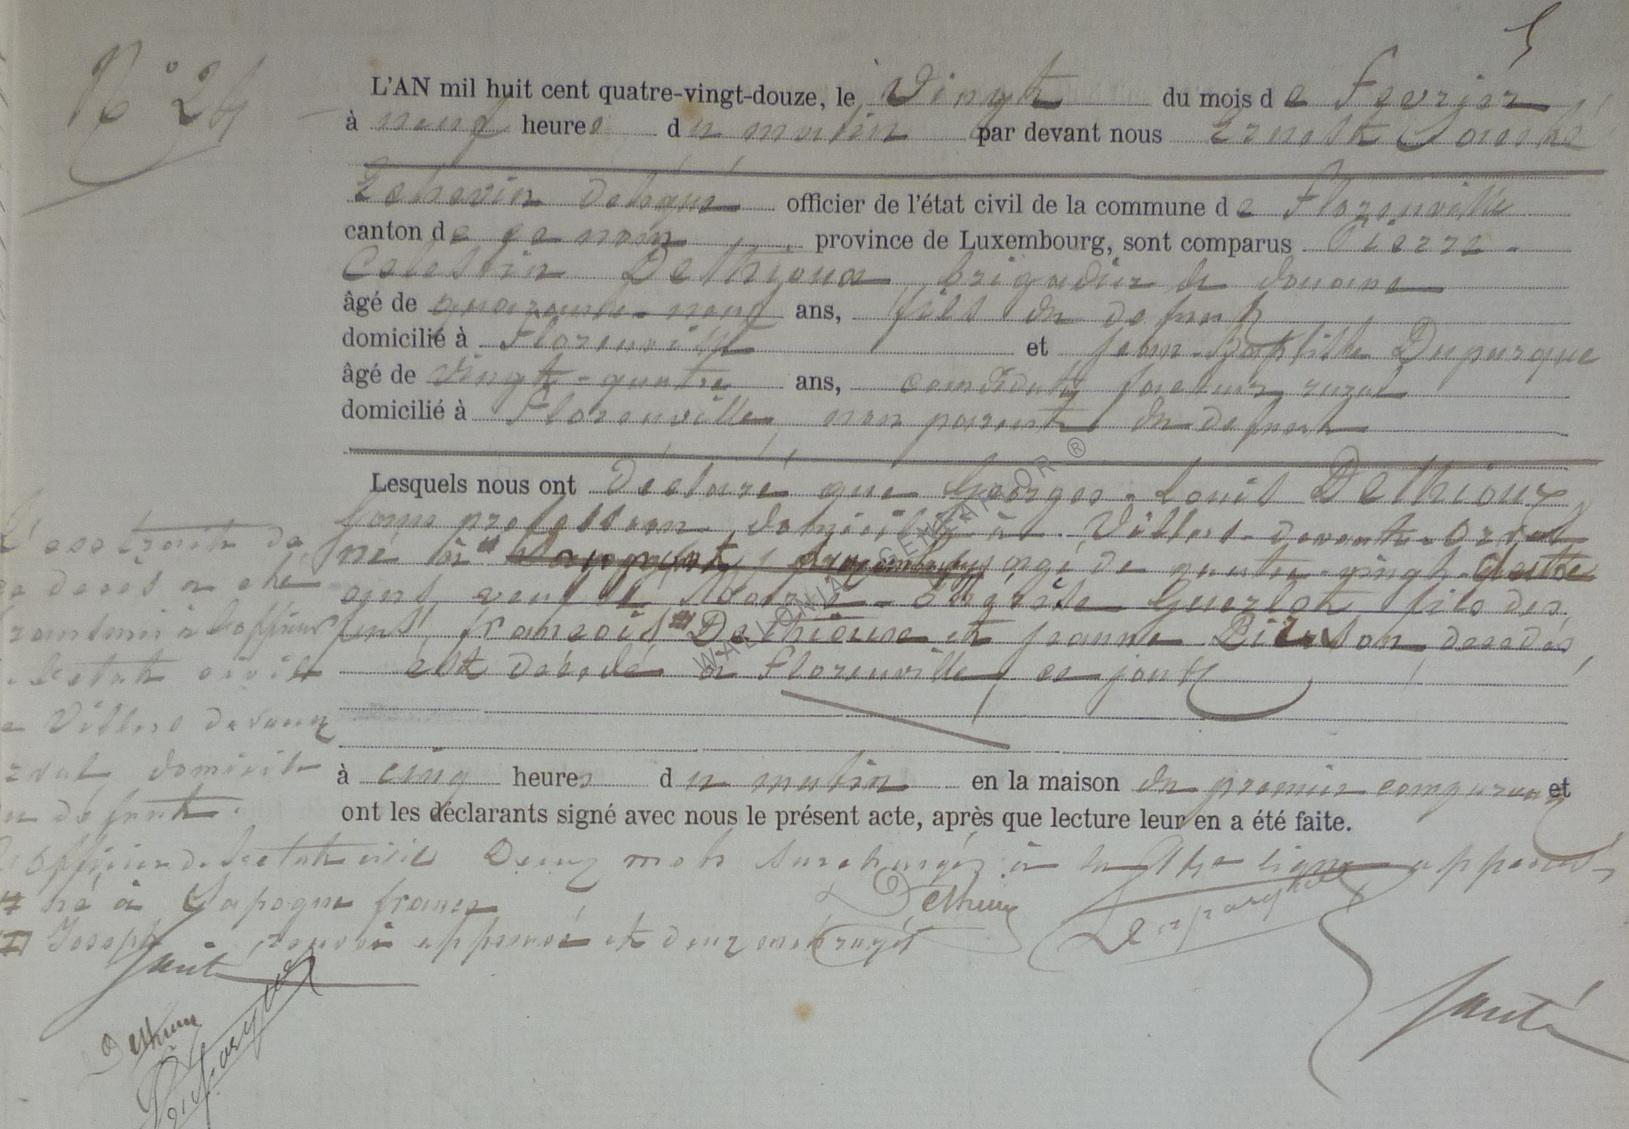 5
N° 24
L'AN mil huit cent quatre-vingt-douze, le vingt du mois de février
à neuf heures du matin par devant nous Ernest
Echevin délégué officier de l'état civil de la commune de Florenville
canton de province de Luxembourg, sont comparus Pierre-
Celestin Delhioux brigadier de douane
âgé de quarante-neuf ans, fils du defunt
domicilié à Florenville et Jean-Baptiste Duparque
âgé de vingt-quatre ans, facteur rural
domicilié à Florenville, non parent du defunt
Lesquels nous ont déclaré que Georges-Louis Delhioux
sans profession, domicilié à Villers-devant-Orval
né à # âgé de quatre-vingt-
ans, veuf de Marie- fils des
François # Delhioux et Jeanne decedés,
est décédé à Florenville, ce jour
à cinq heures du matin en la maison du premier comparant et
ont les déclarants signé avec nous le présent acte, après que lecture leur en a été faite.
extrait de
décès a été
transmis à l'officier
l'etat civil
Villers devant
Orval domicile
du defunt.
officier de l'etat civil Deux mots surchargés à la ligne approuvés
# né à Sapogne france
# Joseph, renvoi approuvé et deux mots rayés
WALLONIA GENEATOR ®